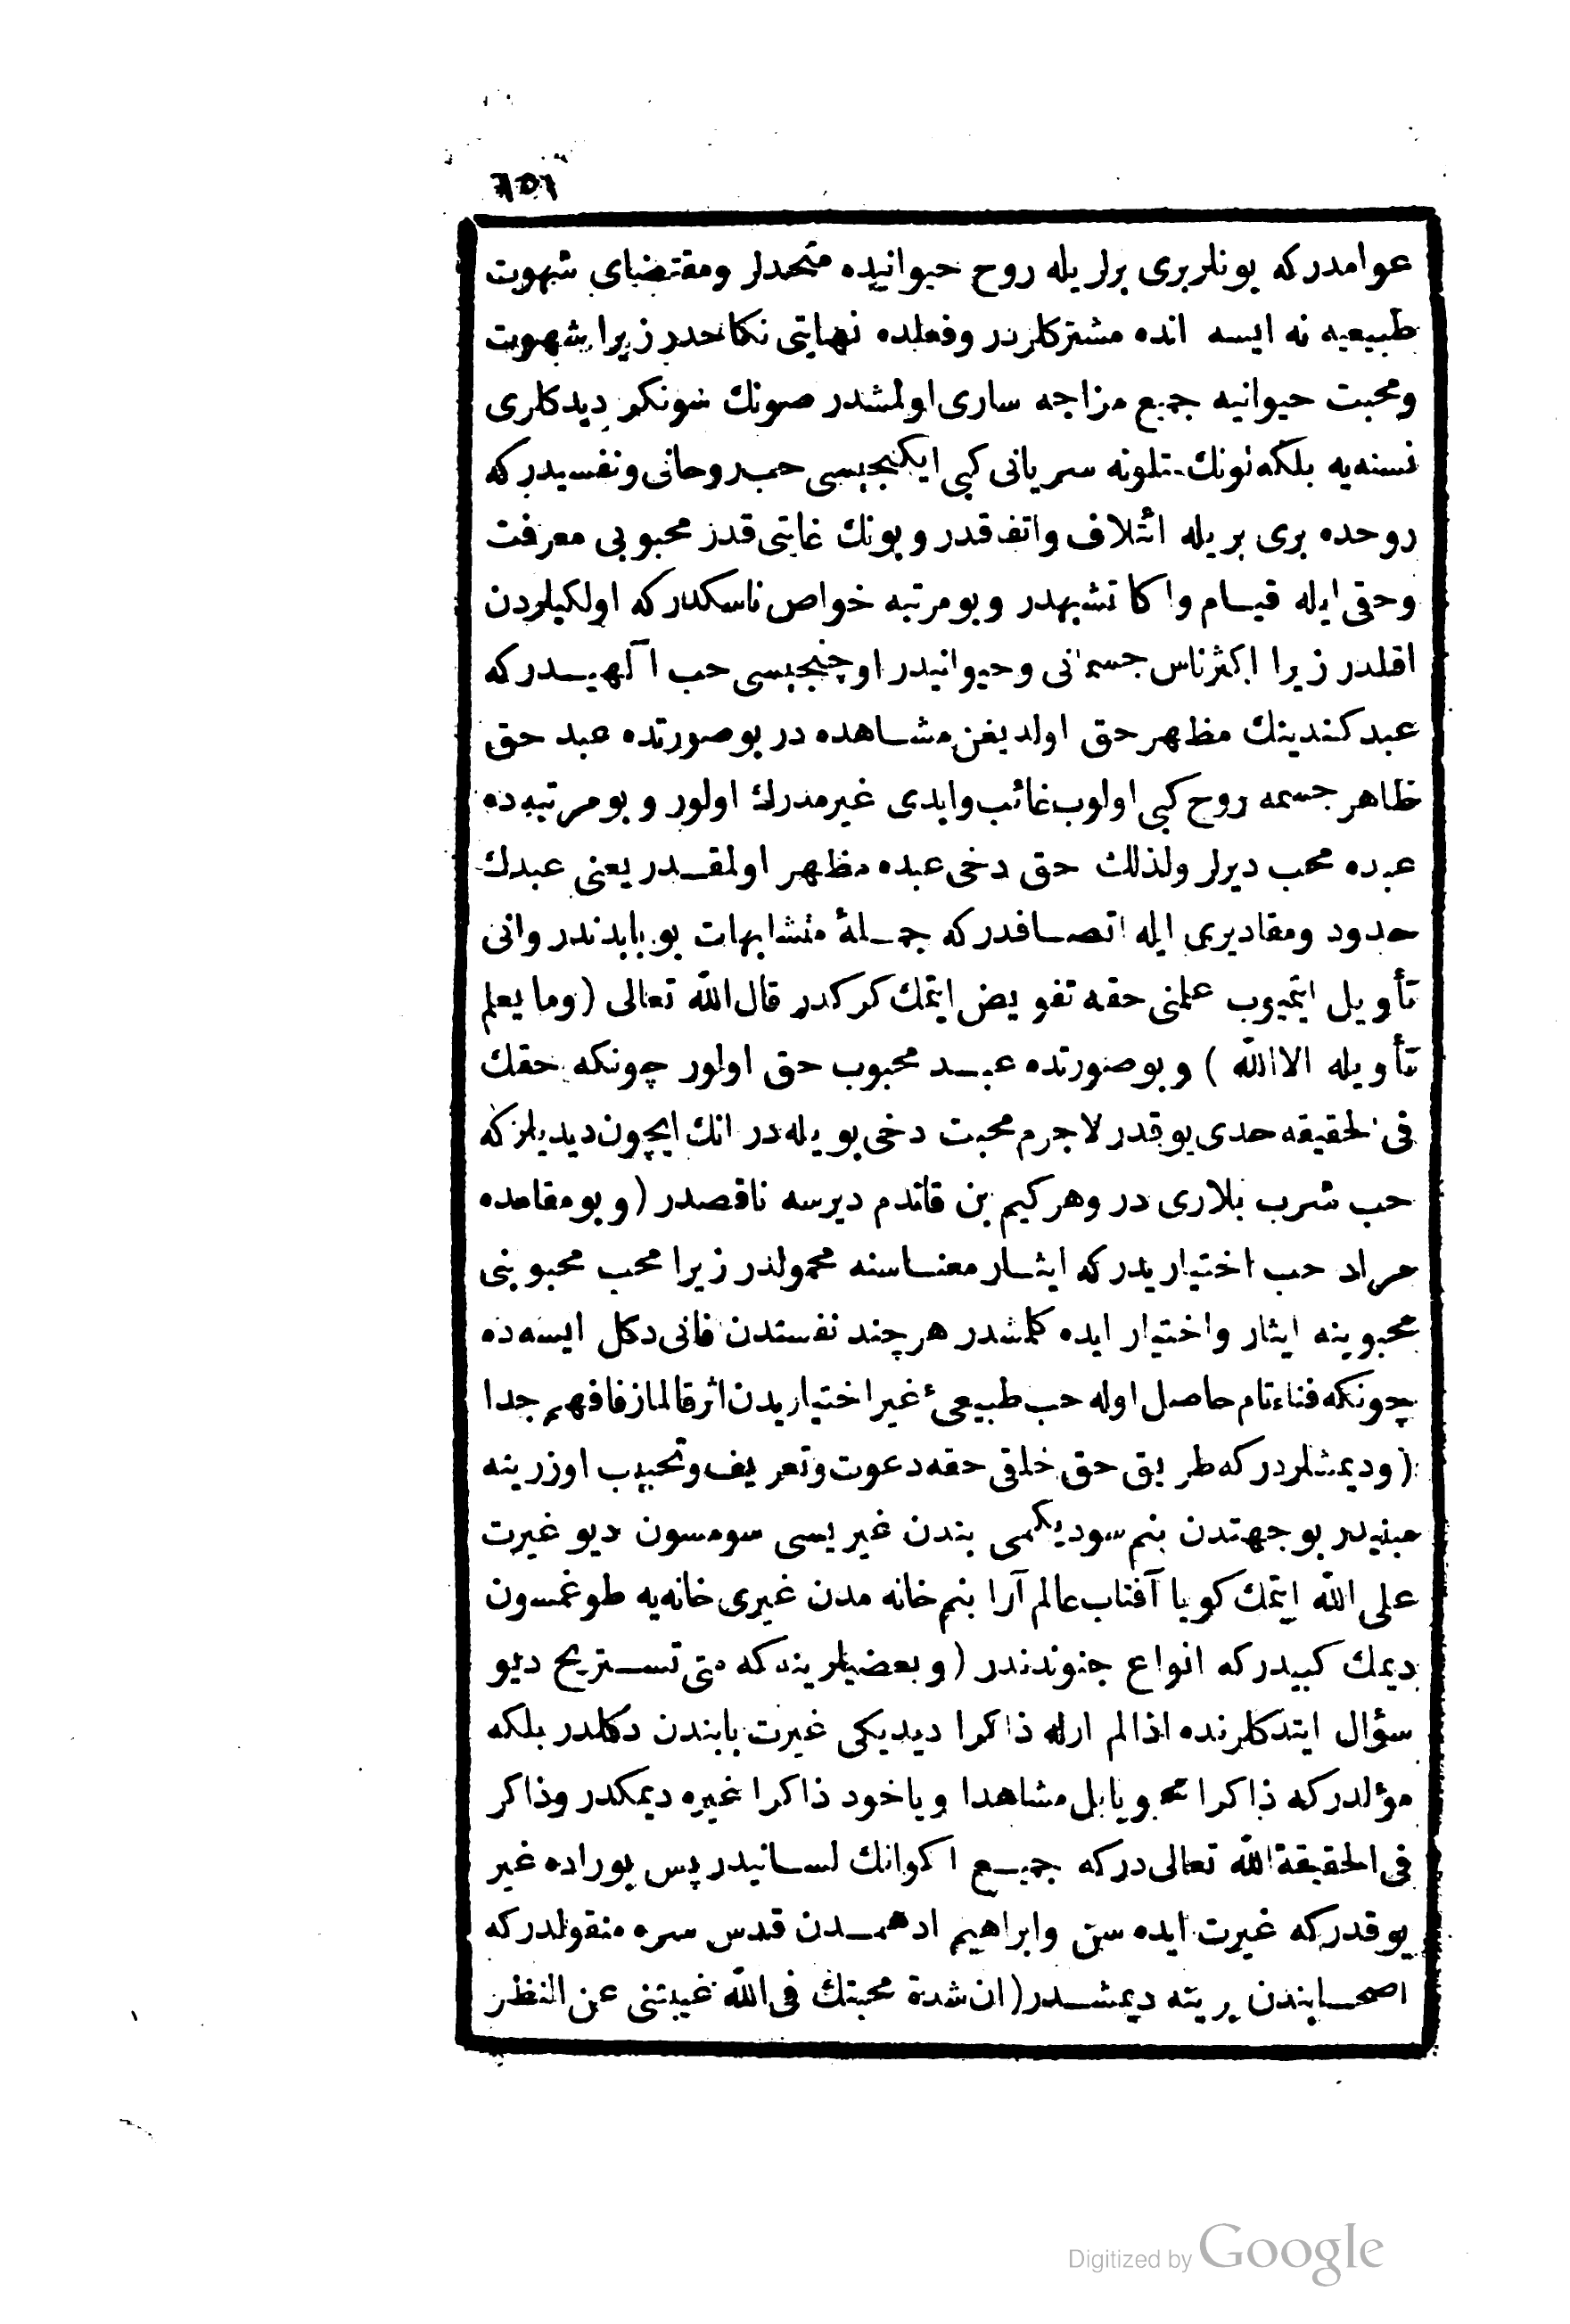 عوامدركه بونلربرى برلريله روح حيوانيده متحدلر ومقتضاى شهوت
طبيعيه نه ايسه انده مشتركلردر وفعلده نهايتى نكاحدر زيرا شهوت
ومحبت حيوانيه جميع مزاجه سارى اولمشدر صونك شونكر ديدكارى
نسنه‌يه بلكه نونك متلونه سريانى كبى ايكنجيسى حب روحانى ونفسيدركه
روحده برى بريله ائتلاف واتفاقدر وبونك غايتى قدر محبوبى معرفت
وحقى ايله قيام واكا تشبهدر وبومرتبه خواص ناسكدركه اولكيلردن
اقلدر زيرا اكثر ناس جسمانى وحيوانيدر اوچنجيسى حب آلهيدركه
عبد كندينك مظهر حق اولديغن مشاهده در بوصورتده عبد حق
ظاهر جسمه روح كبى اولوب غائب وابدى غير مدرك اولور وبو مرتبه ده
عبده محب ديرلر ولذلك حق دخى عبده مظهر اولمقدر يعنى عبدك
حدود ومقاديرى ايله اتصافدركه جملهٔ متشابهات بوبابدندر وانى
تأويل ايتميوب علمنى حقه تفويض ايتمك كركدر قال الله تعالى (وما يعلم
تأويله الاالله ) وبوصورتده عبد محبوب حق اولور چونكه حقك
فى الحقيقه حدى يوقدر لاجرم محبت دخى بويله در انك ايچون ديديلركه
حب شرب بلارى در وهركيم بن قاندم ديرسه ناقصدر (وبومقامده
مراد حب اختياريدركه ايثار معناسنه محمولدر زيرا محب محبوبنى
محبوبنه ايثار واختيار ايده كلمشدر هرچند نفسندن فانى دكل ايسه ده
چونكه فناءتام حاصل اوله حب طبيعىٔ غير اختياريدن اثر قالماز فافهم جدا
(وديمشلردركه طريق حق خلقى حقه دعوت وتعريف وتحبيب اوزرينه
مبنيدر بوجهتدن بنم سوديكمى بندن غيريسى سومسون ديو غيرت
على الله ايتمك كويا آفتاب عالم آرا بنم خانه مدن غيرى خانه‌يه طوغمسون
ديمك كبيدركه انواع جنوندندر (وبعضيلرينه كه متى تستريح ديو
سؤال ايتدكلرنده اذا لم ارله ذاكرا ديديكى غيرت بابندن دكلدر بلكه
مؤلدركه ذاكرا محجوبا بل مشاهدا وياخود ذاكرا غيره ديمكدر وذاكر
فى الحقيقة الله تعالى دركه جميع اكوانك لسانيدر پس بوراده غير
يوقدركه غيرت ايده سن وابراهيم ادهمدن قدس سره منقولدركه
اصحابندن برينه ديمشدر(ان شدة محبتك فى الله غيبتنى عن النظر